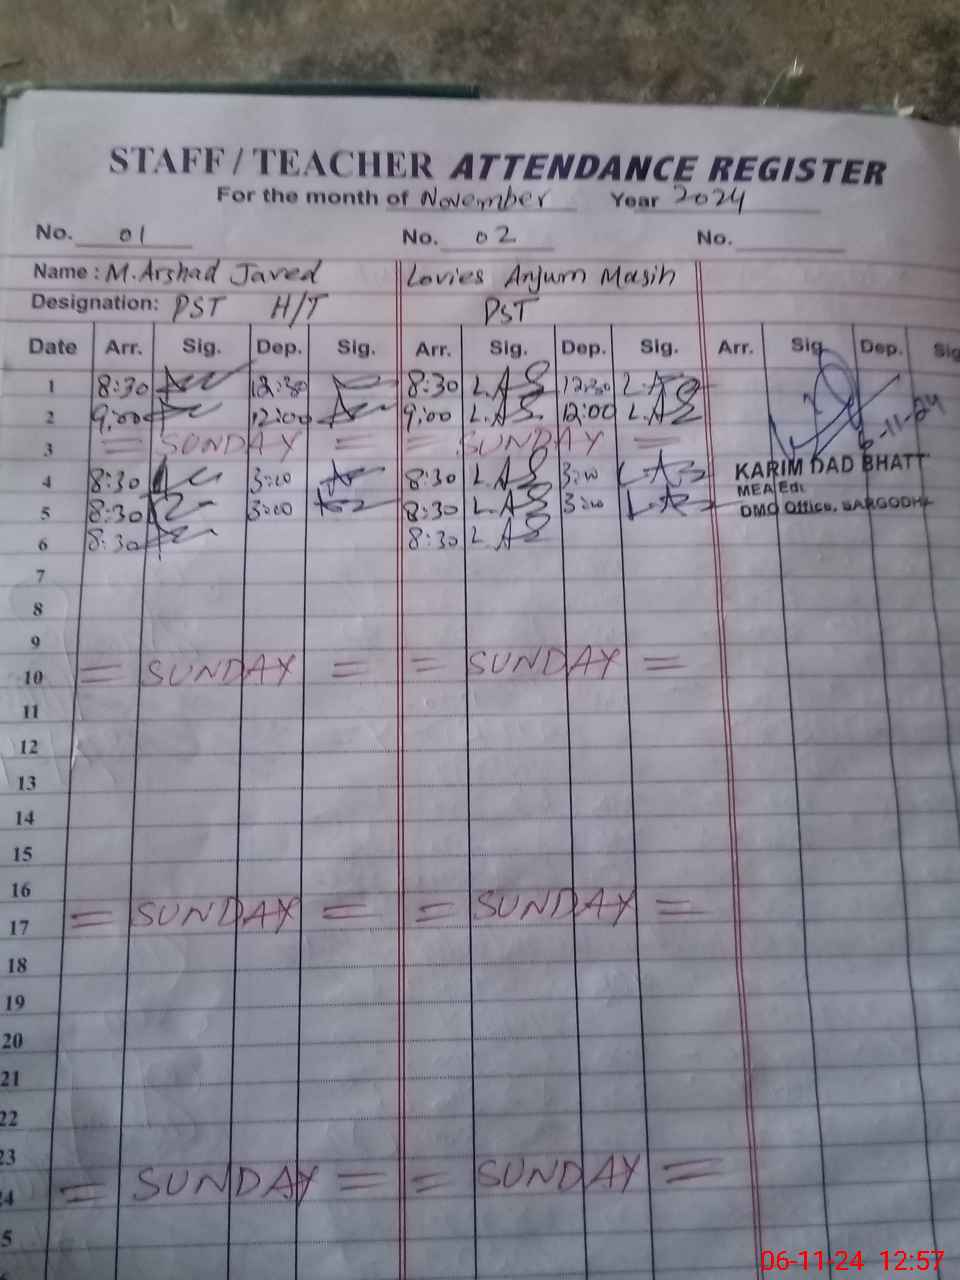 STAFF / TEACHER ATTENDANCE REGISTER
For the month of November Year 2024
No. 01 No. 02 No.
Name : M. Arshad Javed Lovies Anjum Masih
Designation: PST H/T PST
Date Arr. Sig. Dep. Sig. Arr. Sig. Dep. Sig. Arr. Sig. Dep. Sig
1 8:30 12:30 8:30 L.AS 12:30 L.AS
2 9:00 12:00 9:00 L.AS. 12:00 L.AS
3 = SUNDAY = = SUNDAY =
6-11-24
4 8:30 3:00 8:30 L.AS 3:00
KARIM DAD BHATTI
MEA Edu
5 8:30 3:00 8:30 L.AS 3:00
DMO Office, SARGODHA
6 8:30 8:30 L.AS
7
8
9
10 = SUNDAY = = SUNDAY =
11
12
13
14
15
16
17 = SUNDAY = = SUNDAY =
18
19
20
21
22
23
24 = SUNDAY = = SUNDAY =
5
06-11-24 12:57